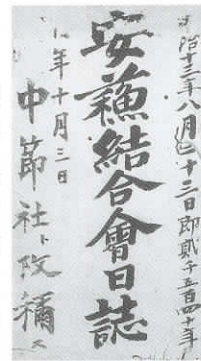 明治十三年八月二十三日即貳千五百四十年
安蘓結合會日誌
年十月三日
中節社ト改稱ス